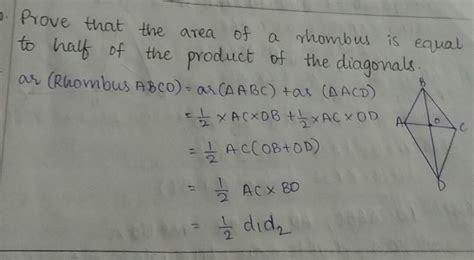 Prove that the area of a rhombus is equal
to half of the product of the diagonals.
ar (Rhombus ABCD) = ar (△ABC) + ar (△ACD)
= 1/2 × AC × OB + 1/2 × AC × OD
= 1/2 AC (OB + OD)
= 1/2 AC × BD
= 1/2 d1d2
B
A
O
C
D